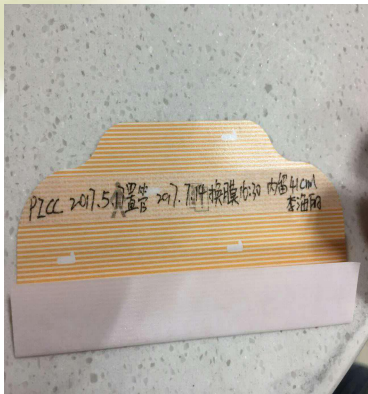 PICC 2017.5.置管 2017.7.14 换膜 16:30 内留 41CM
李海丽